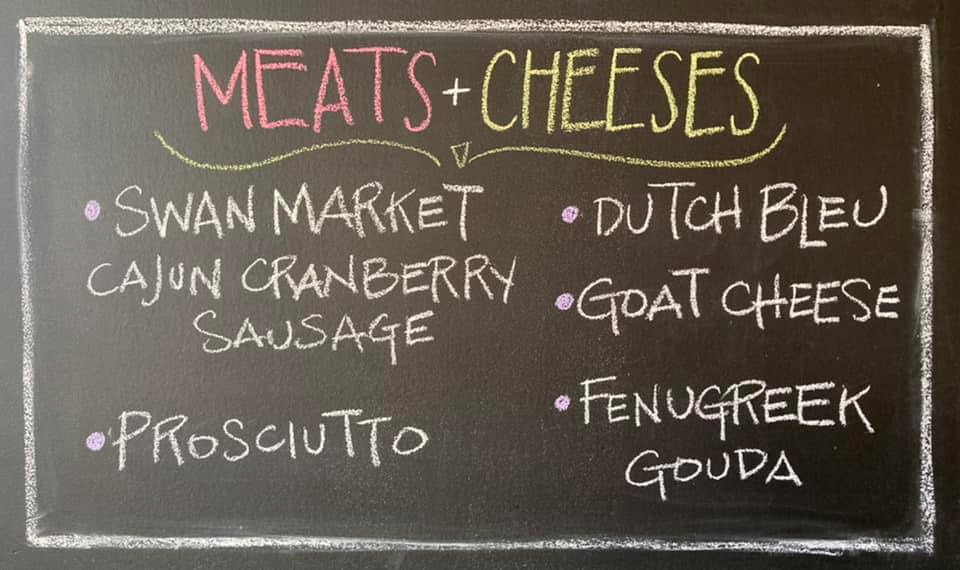 MEATS + CHEESES
• SWAN MARKET
CAJUN CRANBERRY
SAUSAGE
• PROSCIUTTO
• DUTCH BLEU
• GOAT CHEESE
• FENUGREEK
GOUDA